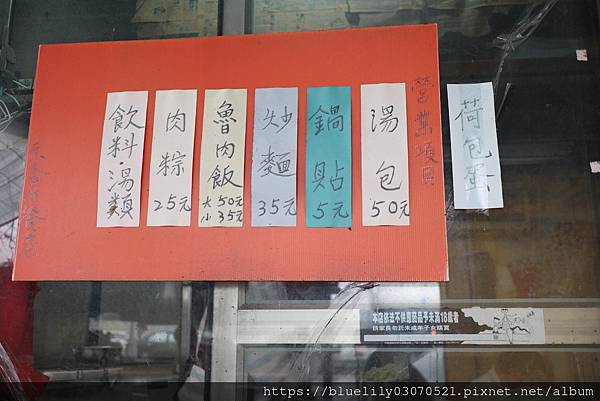 營業項目
荷包蛋
湯包
50元
鍋貼
5元
炒麵
35元
魯肉飯
大50元
小35元
肉粽
25元
飲料.湯類
本店依法不供應菸品予未滿18歲者
https://bluelily03070521.pixnet.net/album